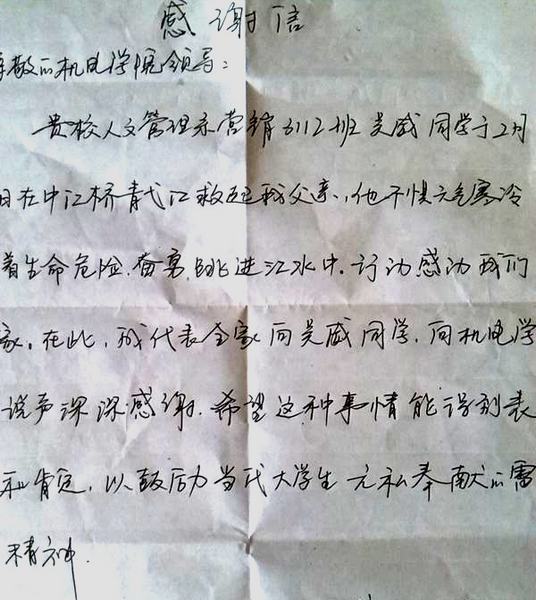 感谢信
尊敬的机电学院领导:
贵校人文管理系营销6112班吴威同学于2月
日在中江桥青弋江救起我父亲,他不惧天气寒冷
着生命危险.奋勇跳进江水中.行动感动我们
家。在此,我代表全家向吴威同学.向机电学
说声深深感谢.希望这种事情能得到表
和肯定,以鼓励当代大学生无私奉献的雷
精神.